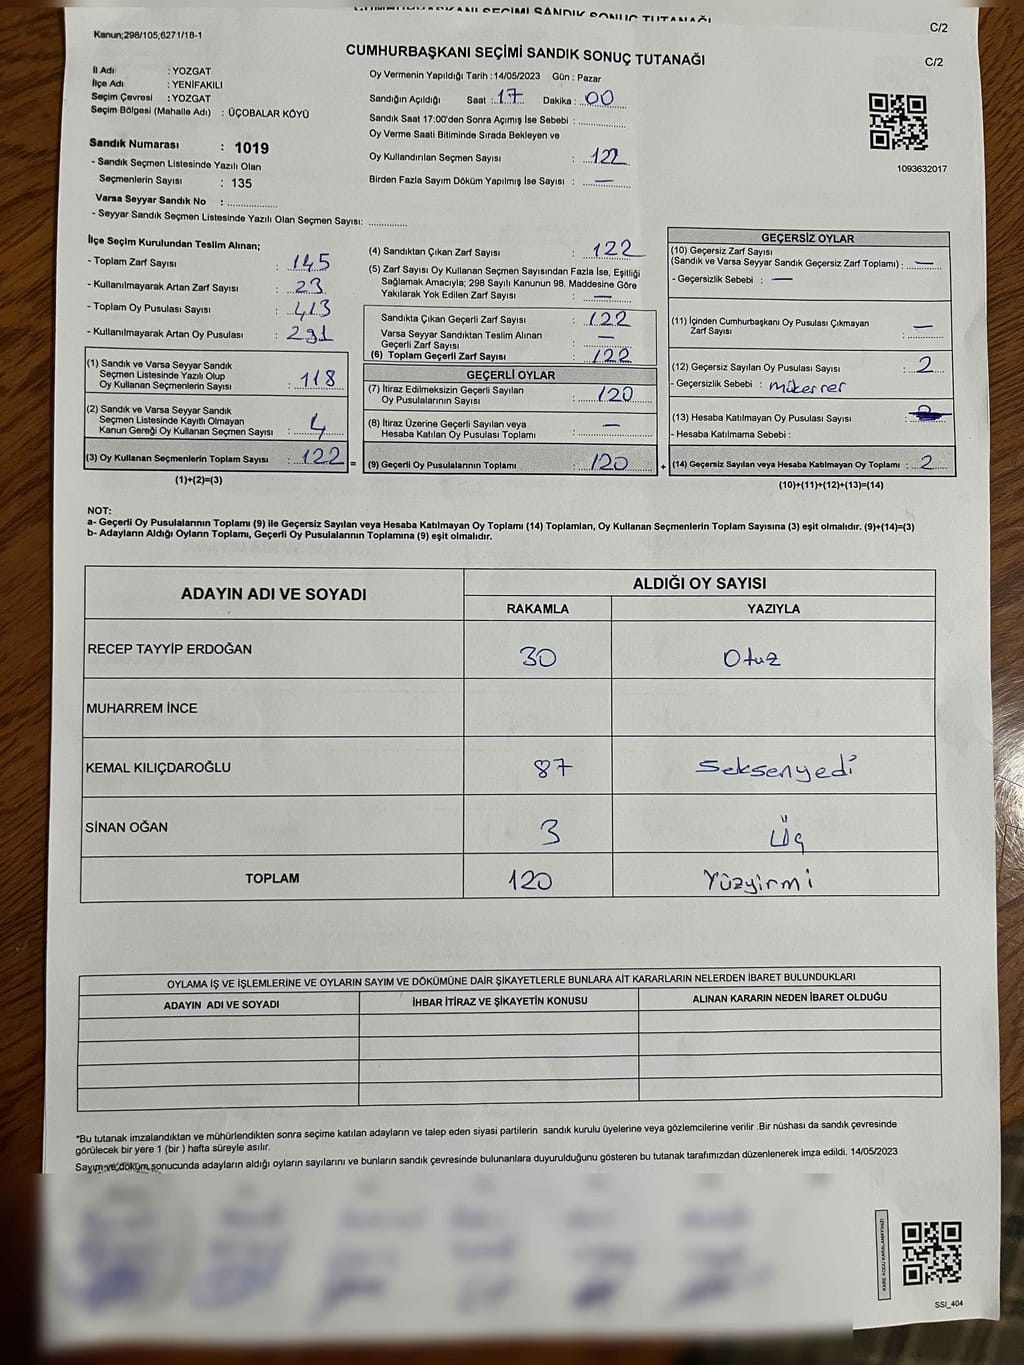 C/2
Kanun;298/105,6271/18-1
CUMHURBAŞKANI SEÇİMİ SANDIK SONUÇ TUTANAĞI
C/2
İl Adı : YOZGAT
İlçe Adı : YENİFAKILI
Seçim Çevresi : YOZGAT
Seçim Bölgesi (Mahalle Adı) : ÜÇOBALAR KÖYÜ
Sandık Numarası : 1019
- Sandık Seçmen Listesinde Yazılı Olan
Seçmenlerin Sayısı : 135
Varsa Seyyar Sandık No :
- Seyyar Sandık Seçmen Listesinde Yazılı Olan Seçmen Sayısı:
Oy Vermenin Yapıldığı Tarih : 14/05/2023 Gün : Pazar
Sandığın Açıldığı Saat : 17 Dakika : 00
Sandık Saat 17:00'den Sonra Açımış İse Sebebi :
Oy Verme Saati Bitiminde Sırada Bekleyen ve
Oy Kullandırılan Seçmen Sayısı : 122
Birden Fazla Sayım Döküm Yapılmış İse Sayısı : —
1093632017
İlçe Seçim Kurulundan Teslim Alınan;
- Toplam Zarf Sayısı : 145
- Kullanılmayarak Artan Zarf Sayısı : 23
- Toplam Oy Pusulası Sayısı : 413
- Kullanılmayarak Artan Oy Pusulası : 291
(1) Sandık ve Varsa Seyyar Sandık
Seçmen Listesinde Yazılı Olup
Oy Kullanan Seçmenlerin Sayısı : 118
(2) Sandık ve Varsa Seyyar Sandık
Seçmen Listesinde Kayıtlı Olmayan
Kanun Gereği Oy Kullanan Seçmen Sayısı : 4
(3) Oy Kullanan Seçmenlerin Toplam Sayısı : 122 =
(1)+(2)=(3)
(4) Sandıktan Çıkan Zarf Sayısı : 122
(5) Zarf Sayısı Oy Kullanan Seçmen Sayısından Fazla İse, Eşitliği
Sağlamak Amacıyla; 298 Sayılı Kanunun 98. Maddesine Göre
Yakılarak Yok Edilen Zarf Sayısı : —
Sandıkta Çıkan Geçerli Zarf Sayısı : 122
Varsa Seyyar Sandıktan Teslim Alınan
Geçerli Zarf Sayısı : —
(6) Toplam Geçerli Zarf Sayısı : 122
GEÇERLİ OYLAR
(7) İtiraz Edilmeksizin Geçerli Sayılan
Oy Pusulalarının Sayısı : 120
(8) İtiraz Üzerine Geçerli Sayılan veya
Hesaba Katılan Oy Pusulası Toplamı : —
(9) Geçerli Oy Pusulalarının Toplamı : 120 +
GEÇERSİZ OYLAR
(10) Geçersiz Zarf Sayısı
(Sandık ve Varsa Seyyar Sandık Geçersiz Zarf Toplamı) : —
- Geçersizlik Sebebi : —
(11) İçinden Cumhurbaşkanı Oy Pusulası Çıkmayan
Zarf Sayısı : —
(12) Geçersiz Sayılan Oy Pusulası Sayısı : 2
- Geçersizlik Sebebi : mükerrer
(13) Hesaba Katılmayan Oy Pusulası Sayısı :
- Hesaba Katılmama Sebebi :
(14) Geçersiz Sayılan veya Hesaba Katılmayan Oy Toplamı : 2
(10)+(11)+(12)+(13)=(14)
NOT:
a- Geçerli Oy Pusulalarının Toplamı (9) ile Geçersiz Sayılan veya Hesaba Katılmayan Oy Toplamı (14) Toplamları, Oy Kullanan Seçmenlerin Toplam Sayısına (3) eşit olmalıdır. (9)+(14)=(3)
b- Adayların Aldığı Oyların Toplamı, Geçerli Oy Pusulalarının Toplamına (9) eşit olmalıdır.
ADAYIN ADI VE SOYADI
ALDIĞI OY SAYISI
RAKAMLA YAZIYLA
RECEP TAYYİP ERDOĞAN 30 Otuz
MUHARREM İNCE
KEMAL KILIÇDAROĞLU 87 Seksenyedi
SİNAN OĞAN 3 Üç
TOPLAM 120 Yüzyirmi
OYLAMA İŞ VE İŞLEMLERİNE VE OYLARIN SAYIM VE DÖKÜMÜNE DAİR ŞİKAYETLERLE BUNLARA AİT KARARLARIN NELERDEN İBARET BULUNDUKLARI
ADAYIN ADI VE SOYADI İHBAR İTİRAZ VE ŞİKAYETİN KONUSU ALINAN KARARIN NEDEN İBARET OLDUĞU
*Bu tutanak imzalandıktan ve mühürlendikten sonra seçime katılan adayların ve talep eden siyasi partilerin sandık kurulu üyelerine veya gözlemcilerine verilir .Bir nüshası da sandık çevresinde
görülecek bir yere 1 (bir ) hafta süreyle asılır.
Sayım ve döküm sonucunda adayların aldığı oyların sayılarını ve bunların sandık çevresinde bulunanlara duyurulduğunu gösteren bu tutanak tarafımızdan düzenlenerek imza edildi. 14/05/2023
SSI_404